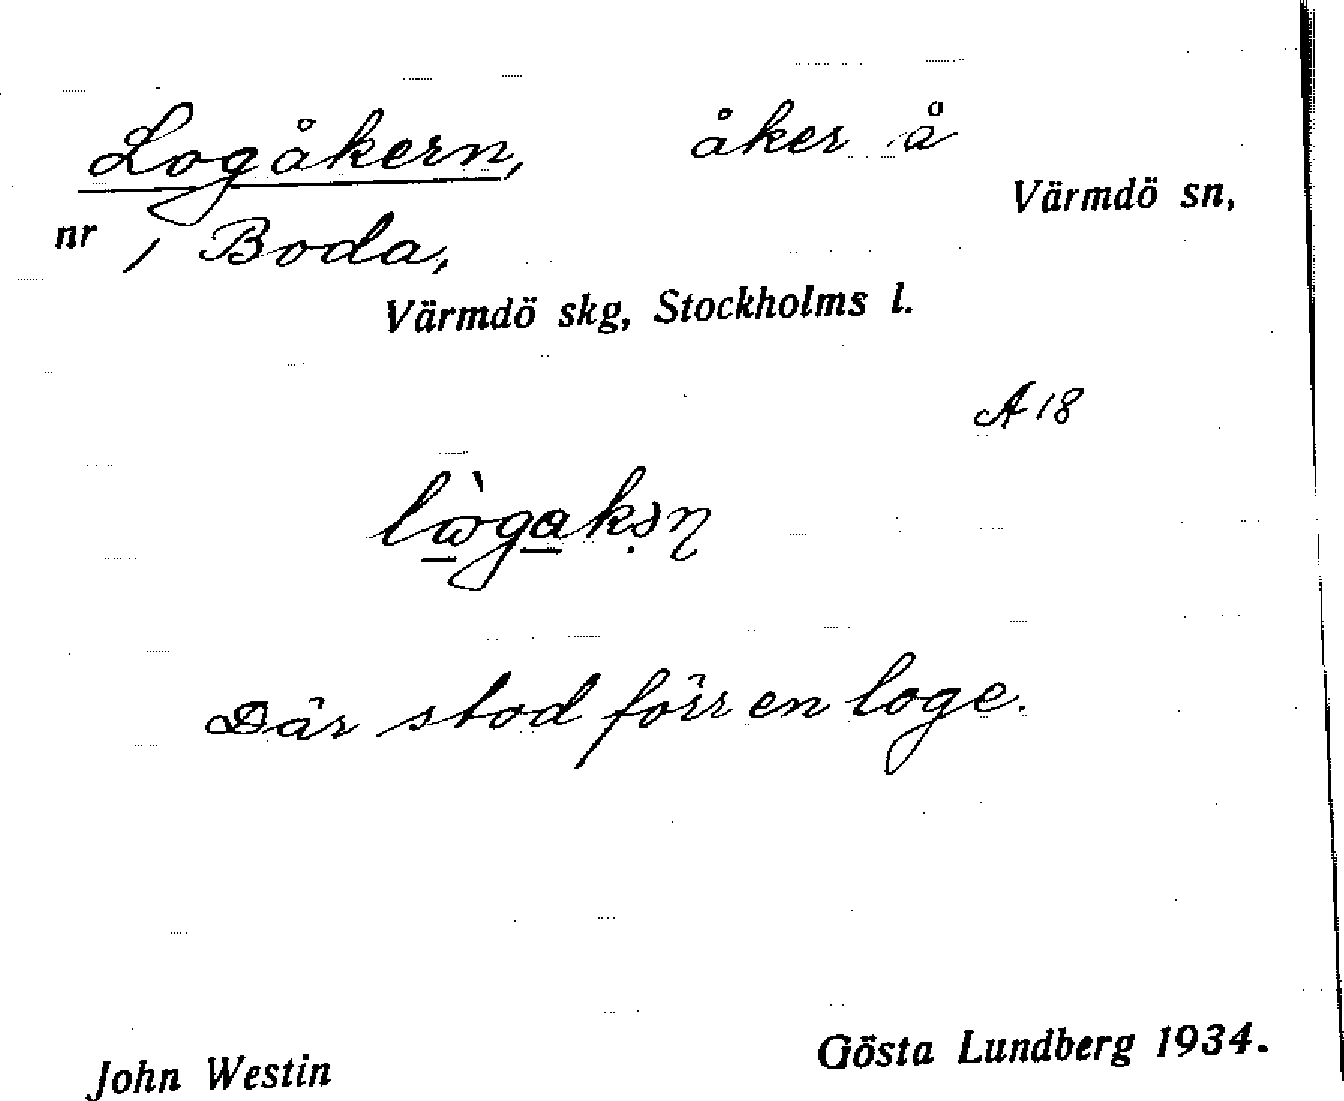 Logåkern, åker å
Värmdö sn,
nr 1 Boda,
Värmdö skg, Stockholms l.
A 18
Där stod förr en loge.
John Westin Gösta Lundberg 1934.